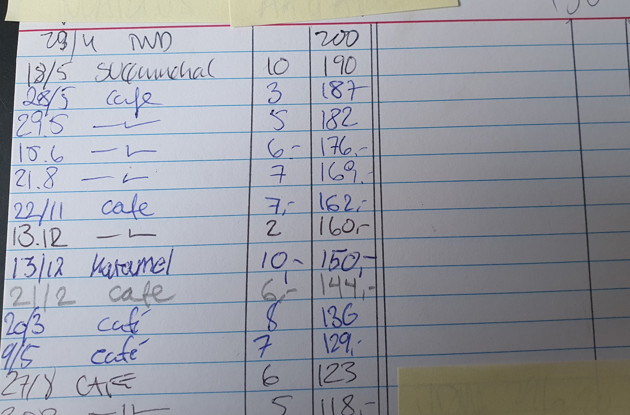 29/4 IWD 200
18/5 10 190
28/5 cafe 3 187
29.5 -"- 5 182
15.6 -"- 6.- 176.-
21.8 -"- 7 169.-
22/11 cafe 7,- 162.-
13.12 -"- 2 160,-
13/12 Karamel 10,- 150,-
21/12 cafe 6,- 144,-
20/3 café 8 136
9/5 café 7 129,-
27/8 CAFE 6 123
-"- 5 118.-